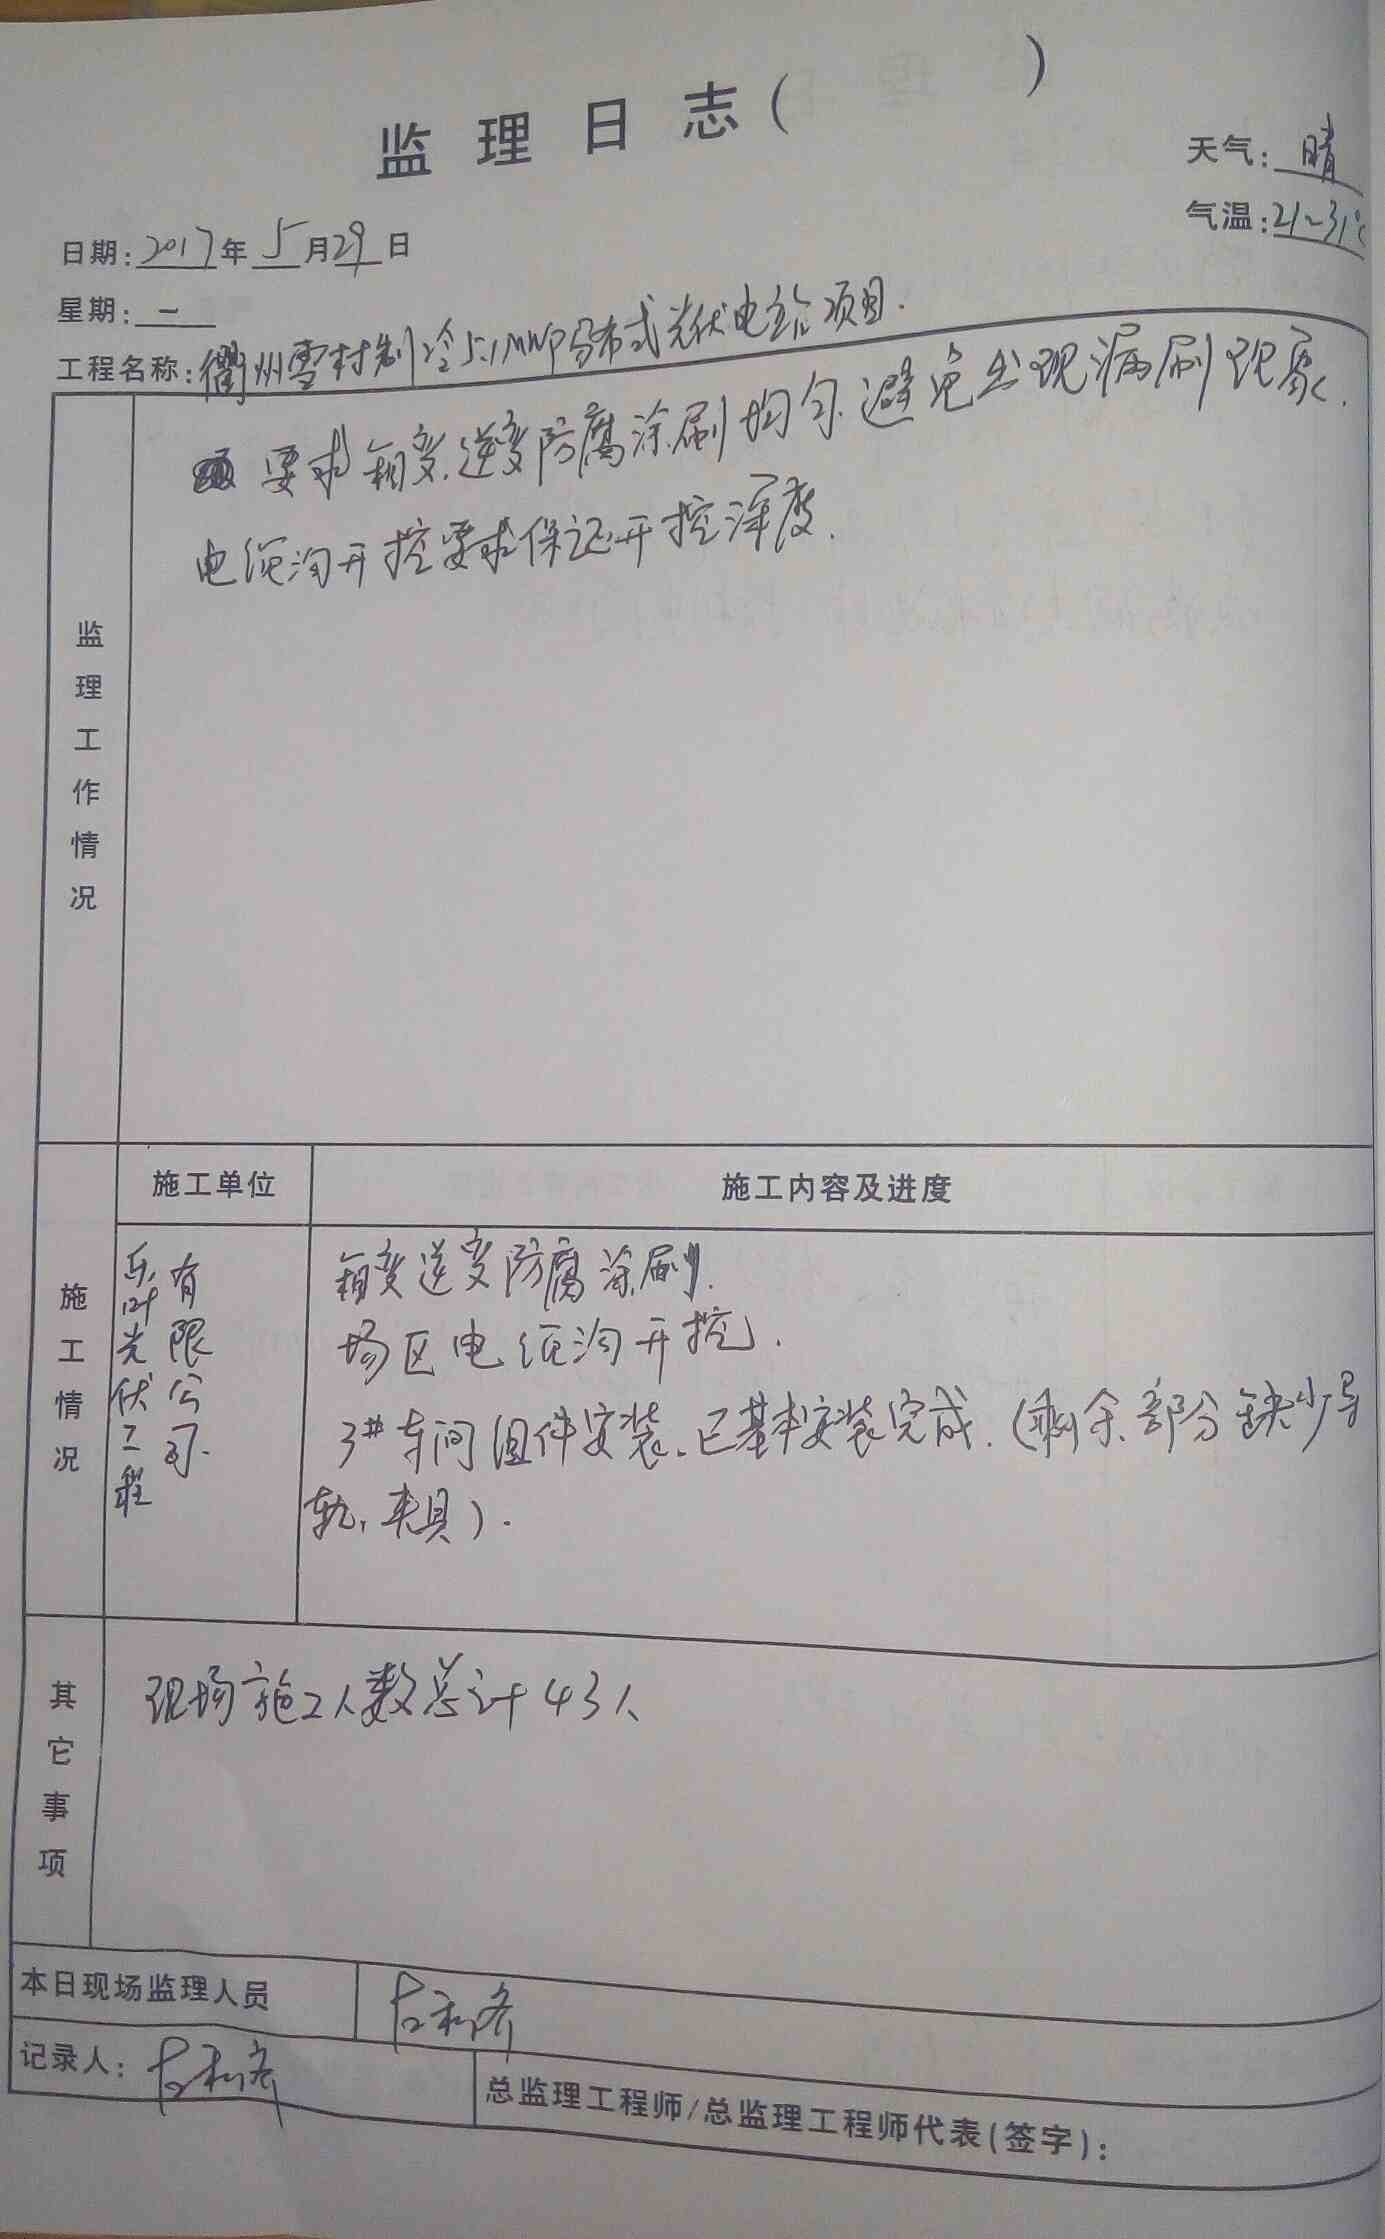 监理日志(        )
天气: 晴
气温: 21~31℃
日期: 2017年 5月29日
星期: 一
工程名称: 衢州雪村制冷5.1MWP分布式光伏电站项目.
监理工作情况
要求箱变.逆变防腐涂刷均匀.避免出现漏刷现象.
电缆沟开挖要求保证开挖深度.
施工情况
施工单位
施工内容及进度
乐叶光伏工程
有限公司.
箱变逆变防腐涂刷.
场区电缆沟开挖.
3#车间组件安装.已基本安装完成.(剩余部分缺少导
轨,夹具).
其它事项
现场施工人数总计43人
本日现场监理人员
记录人:
总监理工程师/总监理工程师代表(签字):